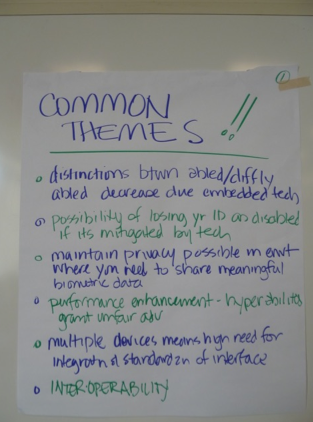 ①
COMMON
THEMES !!
distinctions btwn abled/diffly
abled decrease due embedded tech
possibility of losing yr ID as disabled
if its mitigated by tech
maintain privacy possible in envt
where you need to share meaningful
biometric data
performance enhancement - hyperabilities
grant unfair adv
multiple devices means high need for
integratn & standardzn of interface
INTEROPERABILITY